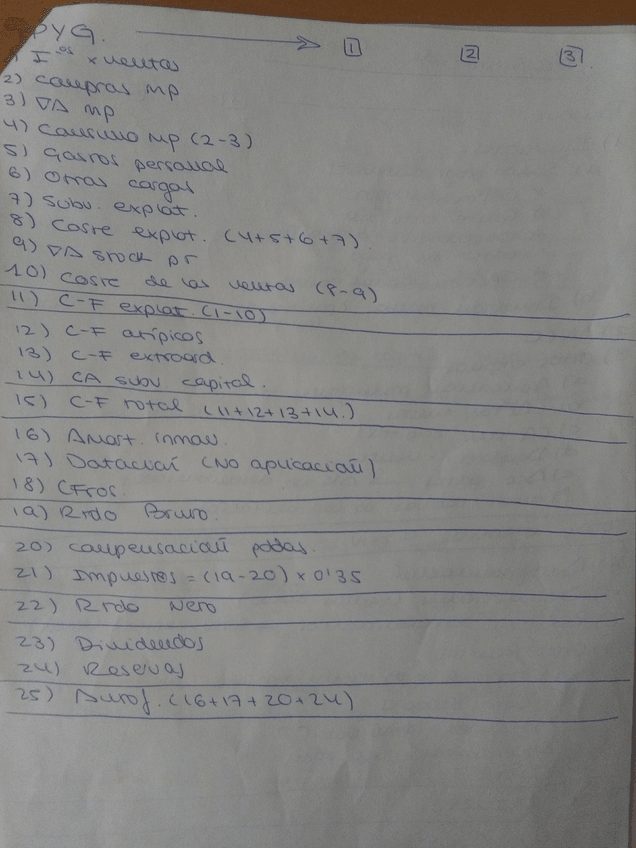 PYG. → 1 2 3
1) Ios x ventas
2) Compras MP
3) ∇Δ MP
4) Consumo MP (2-3)
5) Gastos personal
6) Otras cargas
7) Subv. explot.
8) Coste explot. (4+5+6+7)
9) ∇Δ stock PT
10) Coste de las ventas (8-9)
11) C-F explot (1-10)
12) C-F atípicos
13) C-F extraord.
14) CA subv capital.
15) C-F total (11+12+13+14.)
16) Amort. inmov.
17) Dotación (No aplicación)
18) CFros.
19) Rtdo Bruto.
20) Compensación pddas.
21) Impuestos = (19-20) x 0'35
22) Rtdo Neto
23) Dividendos
24) Reservas
25) Autof. (16+17+20+24)